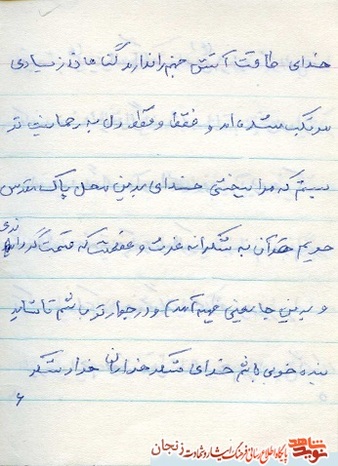 خدای طاقت آتش جهنم را ندارد گناهان زیادی
مرتکب شده‌ام و فقط و فقط دل به رحمانیت تو
بستم که مرا ببخشی خدای بدین محل پاک مقدس
حریم قرآن به شکرانه عزت و عظمتت که قسمت گرداندی
و بدین جا یعنی جبهه آمدم و در جوار تو باشم تا شاید
بنده خوبی باشم خدای شکر خدا را خدا را شکر
۶
نوید شاهد پایگاه اطلاع رسانی فرهنگ ایثار و شهادت زنجان